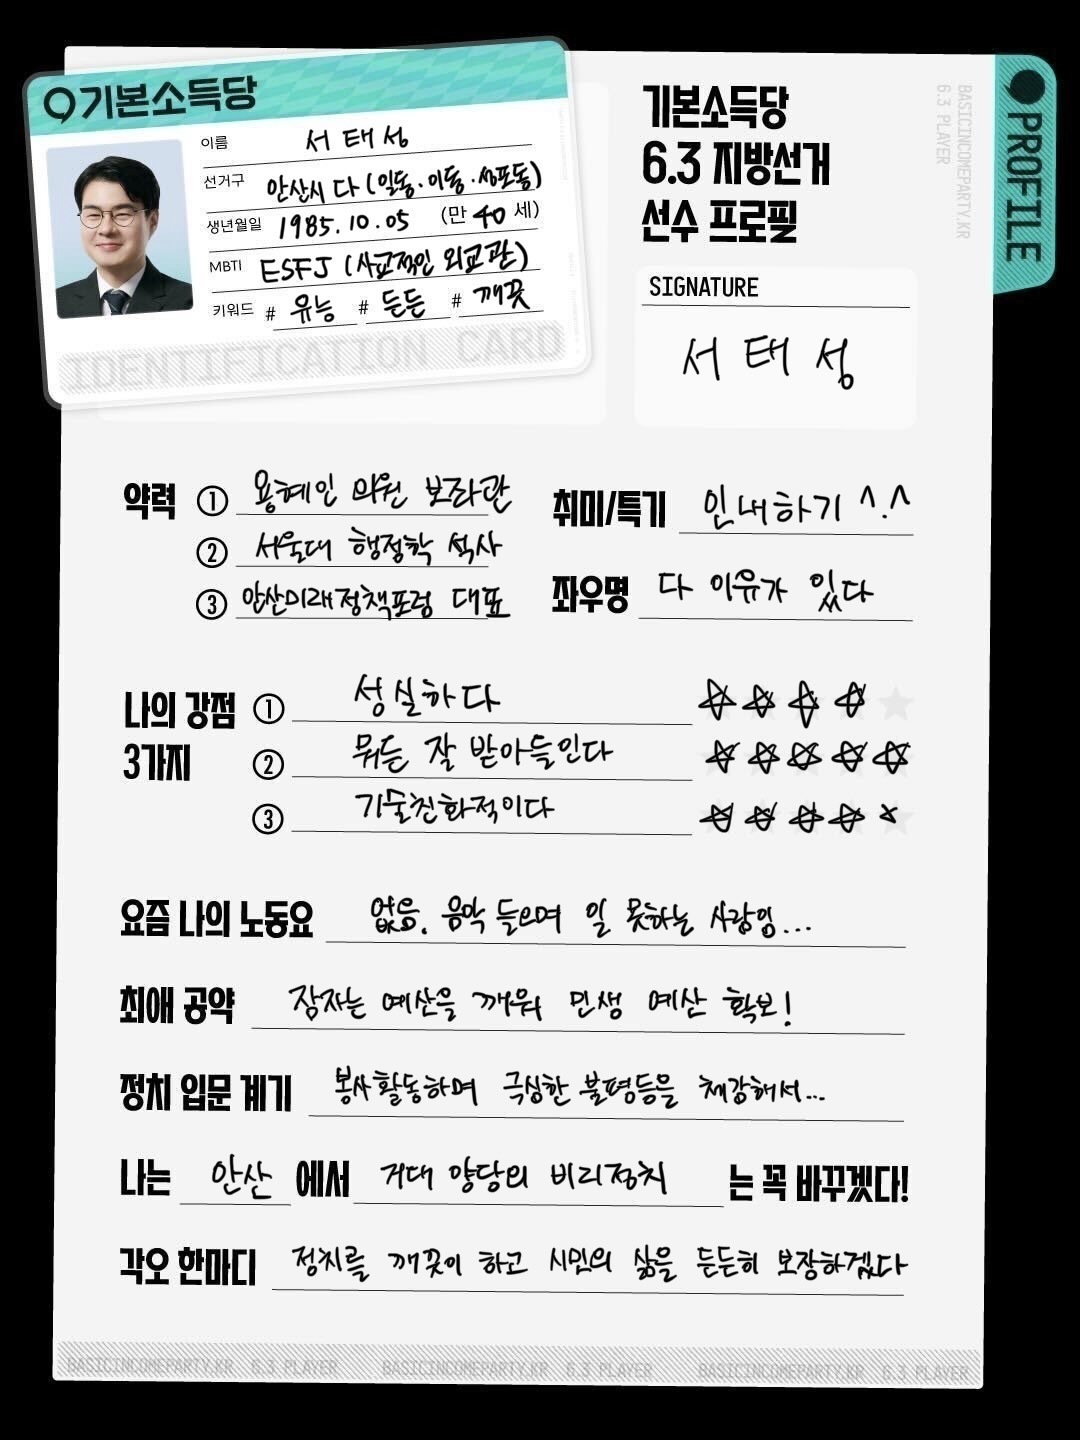 기본소득당
이름 서태성
선거구 안산시 다 (일동·이동·성포동)
생년월일 1985.10.05 (만 40 세)
MBTI ESFJ (사교적인 외교관)
키워드 # 유능 # 든든 # 깨끗
IDENTIFICATION CARD
기본소득당
6.3 지방선거
선수 프로필
BASICINCOMEPARTY.KR
6.3 PLAYER
PROFILE
SIGNATURE
서태성
약력 ① 용혜인 의원 보좌관
② 서울대 행정학 석사
③ 안산미래정책포럼 대표
취미/특기 인내하기 ^.^
좌우명 다 이유가 있다
나의 강점
3가지
① 성실하다
② 뭐든 잘 받아들인다
③ 기술친화적이다
요즘 나의 노동요 없음. 음악 들으며 일 못하는 사람임...
최애 공약 잠자는 예산을 깨워 민생 예산 확보!
정치 입문 계기 봉사활동하며 극심한 불평등을 체감해서...
나는 안산 에서 거대 양당의 비리정치 는 꼭 바꾸겠다!
각오 한마디 정치를 깨끗이 하고 시민의 삶을 든든히 보장하겠다
BASICINCOMEPARTY.KR 6.3 PLAYER BASICINCOMEPARTY.KR 6.3 PLAYER BASICINCOMEPARTY.KR 6.3 PLAYER